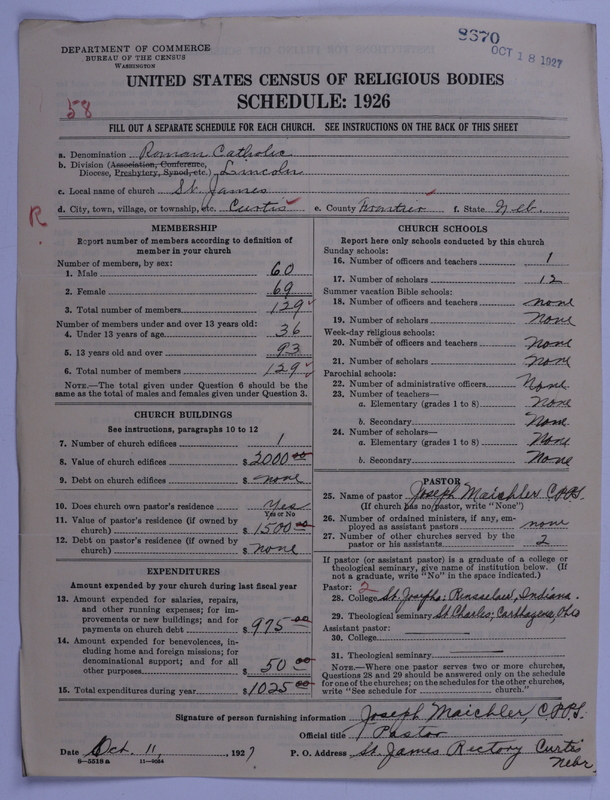 8670
OCT 18 1927
DEPARTMENT OF COMMERCE
BUREAU OF THE CENSUS
WASHINGTON
UNITED STATES CENSUS OF RELIGIOUS BODIES
SCHEDULE: 1926
58
FILL OUT A SEPARATE SCHEDULE FOR EACH CHURCH. SEE INSTRUCTIONS ON THE BACK OF THIS SHEET
a. Denomination Roman Catholic
b. Division (Association, Conference,
Diocese, Presbytery, Synod, etc.) Lincoln
c. Local name of church St. James
R
d. City, town, village, or township, etc. Curtis e. County Frontier f. State Neb.
MEMBERSHIP
Report number of members according to definition of
member in your church
Number of members, by sex:
1. Male 60
2. Female 69
3. Total number of members 129
Number of members under and over 13 years old:
4. Under 13 years of age 36
5. 13 years old and over 93
6. Total number of members 129
NOTE.—The total given under Question 6 should be the
same as the total of males and females given under Question 3.
CHURCH BUILDINGS
See instructions, paragraphs 10 to 12
7. Number of church edifices 1
8. Value of church edifices $2000.00
9. Debt on church edifices $ none
10. Does church own pastor's residence? Yes
Yes or No
11. Value of pastor's residence (if owned by
church) $1500.00
12. Debt on pastor's residence (if owned by
church) $ none
EXPENDITURES
Amount expended by your church during last fiscal year
13. Amount expended for salaries, repairs,
and other running expenses; for im-
provements or new buildings; and for
payments on church debt $975.00
14. Amount expended for benevolences, in-
cluding home and foreign missions; for
denominational support; and for all
other purposes $50.00
15. Total expenditures during year $1025.00
CHURCH SCHOOLS
Report here only schools conducted by this church
Sunday schools:
16. Number of officers and teachers 1
17. Number of scholars 12
Summer vacation Bible schools:
18. Number of officers and teachers none
19. Number of scholars None
Week-day religious schools:
20. Number of officers and teachers None
21. Number of scholars None
Parochial schools:
22. Number of administrative officers None
23. Number of teachers—
a. Elementary (grades 1 to 8) None
b. Secondary None
24. Number of scholars—
a. Elementary (grades 1 to 8) None
b. Secondary None
PASTOR
25. Name of pastor Joseph Maichler C.PP.S.
(If church has no pastor, write "None")
26. Number of ordained ministers, if any, em-
ployed as assistant pastors none
27. Number of other churches served by the
pastor or his assistants 2
If pastor (or assistant pastor) is a graduate of a college or
theological seminary, give name of institution below. (If
not a graduate, write "No" in the space indicated.)
Pastor: 2
28. College St. Josephs: Rensselaer, Indiana.
29. Theological seminary St Charles; Carthagena, Ohio
Assistant pastor:
30. College
31. Theological seminary
NOTE.—Where one pastor serves two or more churches,
Questions 28 and 29 should be answered only on the schedule
for one of the churches; on the schedules for the other churches,
write "See schedule for church."
Signature of person furnishing information Joseph Maichler, C.PP.S.
Official title Pastor
Date Oct. 11, 1927 P. O. Address St. James Rectory Curtis
Nebr.
8—5518a 11—9034